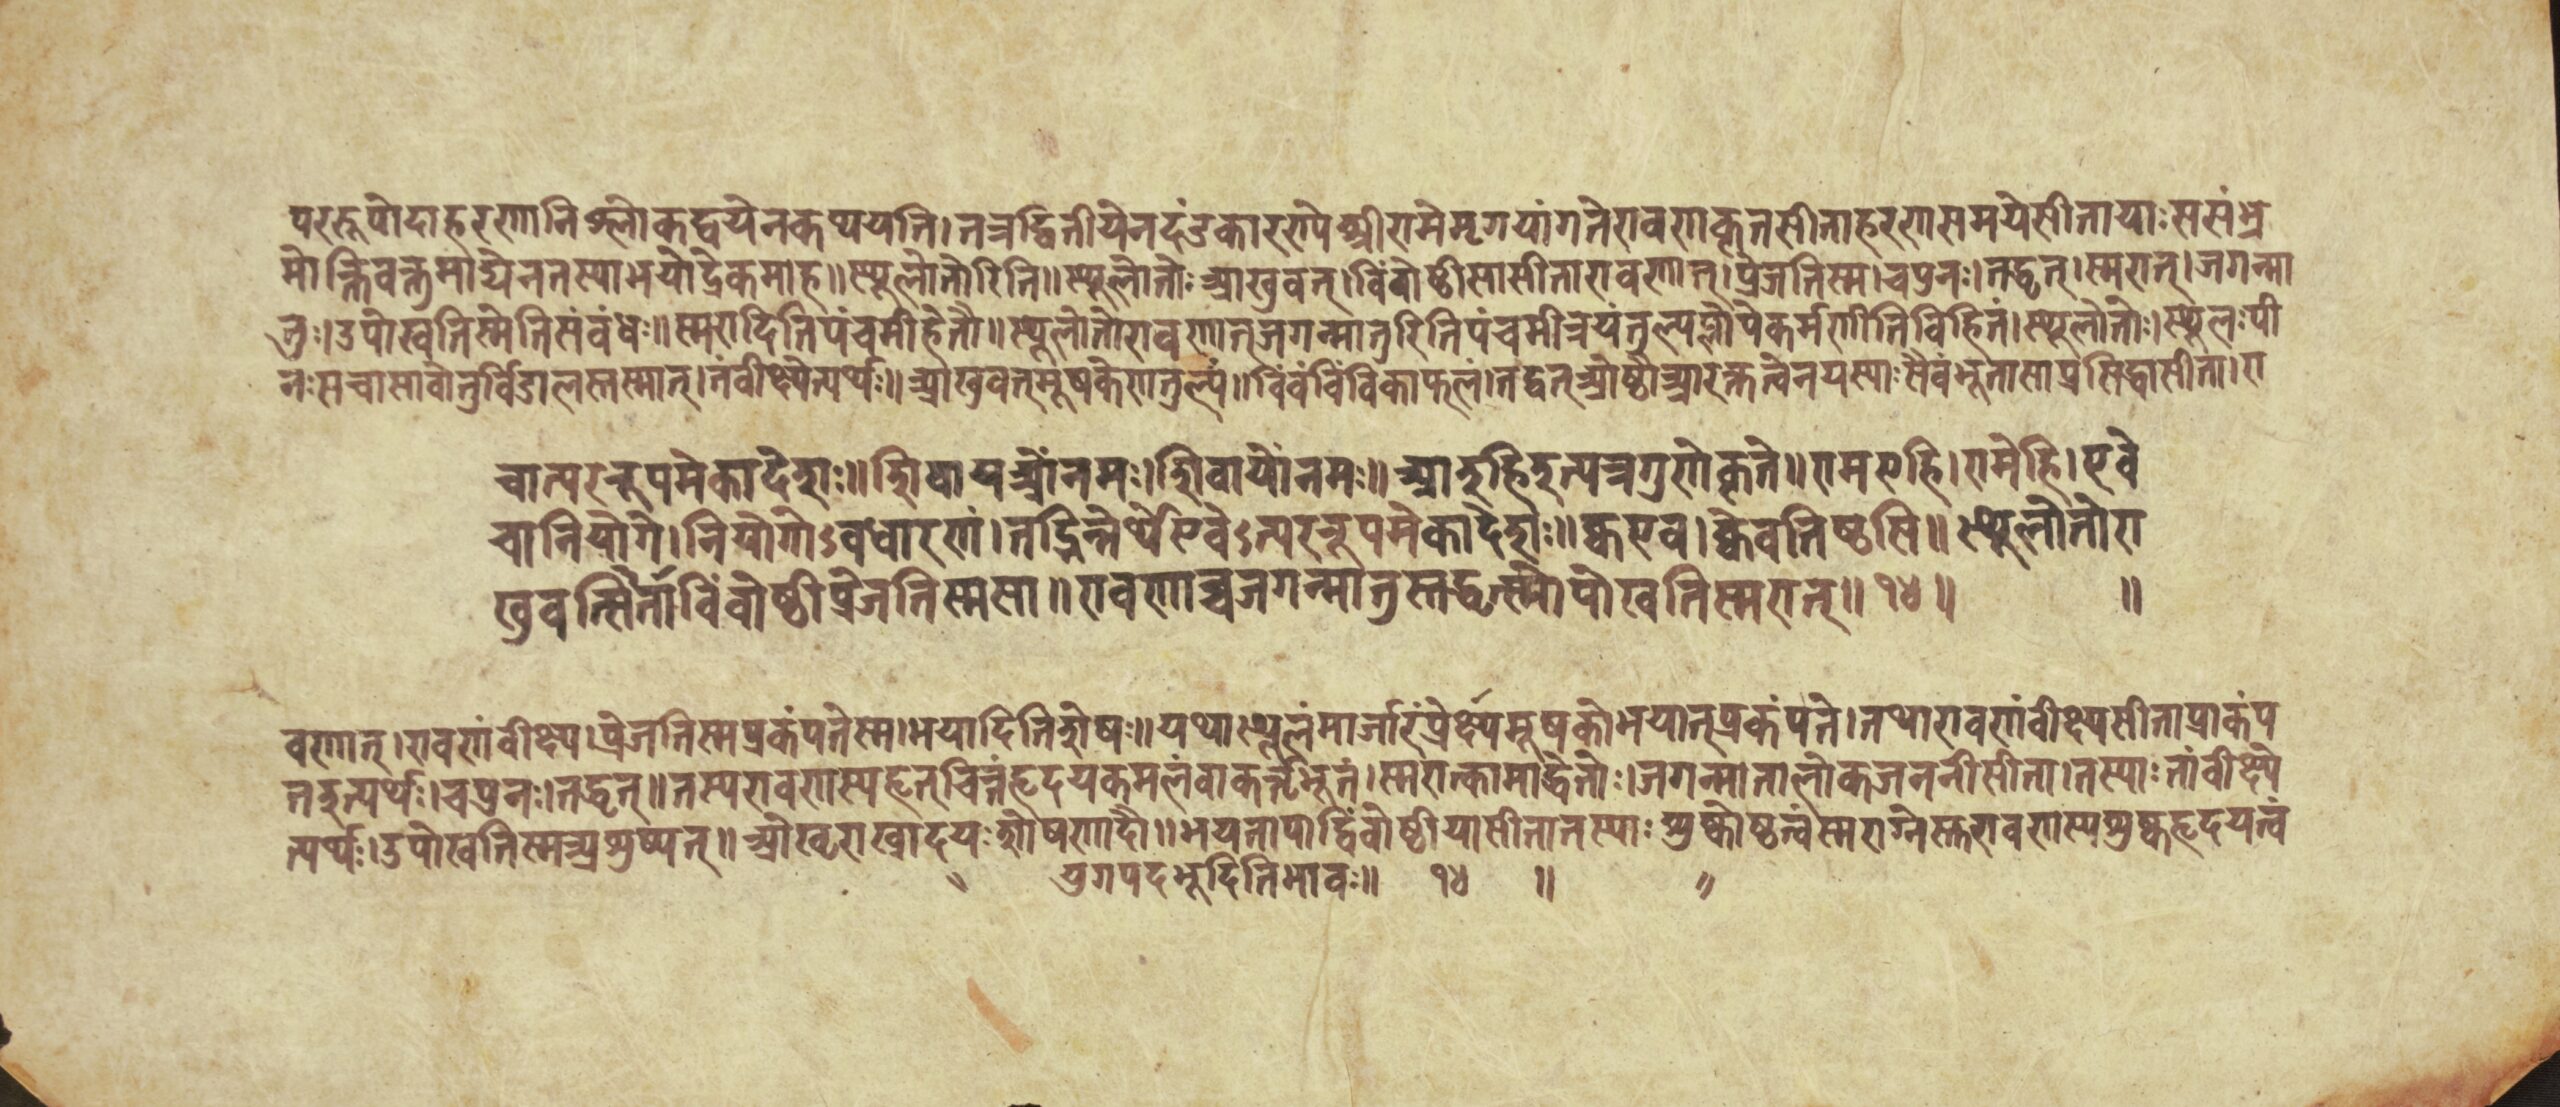 पररूपोदाहरणानिश्लोकद्वयेनकथयति।तत्रद्वितीयेनदंडकारण्येश्रीराममृगयांगतेरावणकृतसीताहरणसमयेसीतायाःससंभ्रे
मोक्तिवक्तुमाद्येनतस्याभयोद्रेकमाह॥स्थूलोतोरिति॥स्थूलोतोःआखुवत्।विंबोष्ठीसासीतारावणात्।प्रेजतिस्म।चपुनः।तद्धृत्।स्मरात्।जगन्मा
तुः।उपोखतिस्मेतिसंबंधः॥स्मरादितिपंचमीहेतौ॥स्थूलोतोरावणात्जगन्मातुरितिपंचमीत्रयंतुल्यब्लोपेकर्मणीतिविहितं।स्थूलोतोः।स्थूलःपी
नःसचासावोतुर्विडालस्तस्मात्।तंवीक्ष्येत्यर्थः॥आखुवत्मूषकेणतुल्यं॥विंबंविंविकाफलं।तद्वत्ओष्ठौआरक्तत्वेनयस्याःसैवंभूतासाप्रसिद्धासीता।रा
चात्पररूपमेकादेशः॥शिवायओंनमः।शिवायोंनमः॥आङ्हिइत्यत्रगुणेकृते॥रामएहि।रामेहि।एवे
चानियोगे।नियोगोऽवधारणं।तद्भिन्नेर्थेएवेऽत्पररूपमेकादेशः॥क्वएव।क्वेवतिष्ठसि॥स्थूलोतोरा
खुवत्सीताविंबोष्ठीप्रेजतिस्मसा॥रावणाच्चजगन्मातुस्तद्धृत्स्मोपोखतिस्मरात्॥१४॥ ॥
वणात्।रावणंवीक्ष्य।प्रेजतिस्मप्रकंपतेस्म।भयादितिशेषः॥यथास्थूलंमार्जारंप्रेक्ष्यमूषकोभयात्प्रकंपते।तथारावणंवीक्ष्यसीताप्राकंप
तइत्यर्थः।चपुनः।तद्धृत्॥तस्यरावणस्यहृत्चित्तंहृदयकमलंवाकर्तृभूतं।स्मरात्कामाद्धेतोः।जगन्मातालोकजननीसीता।तस्याःतांवीक्ष्ये
त्यर्थः।उपोखतिस्मअशुष्यत्॥ओखृराखाद्यःशोषणादौ॥भयतापाद्विंबोष्ठीयासीतातस्याःशुष्कोष्ठत्वंस्मराग्नेस्तरावणस्यशुष्कहृदयत्वं
युगपदभूदितिभावः॥ १४ ॥ ॥